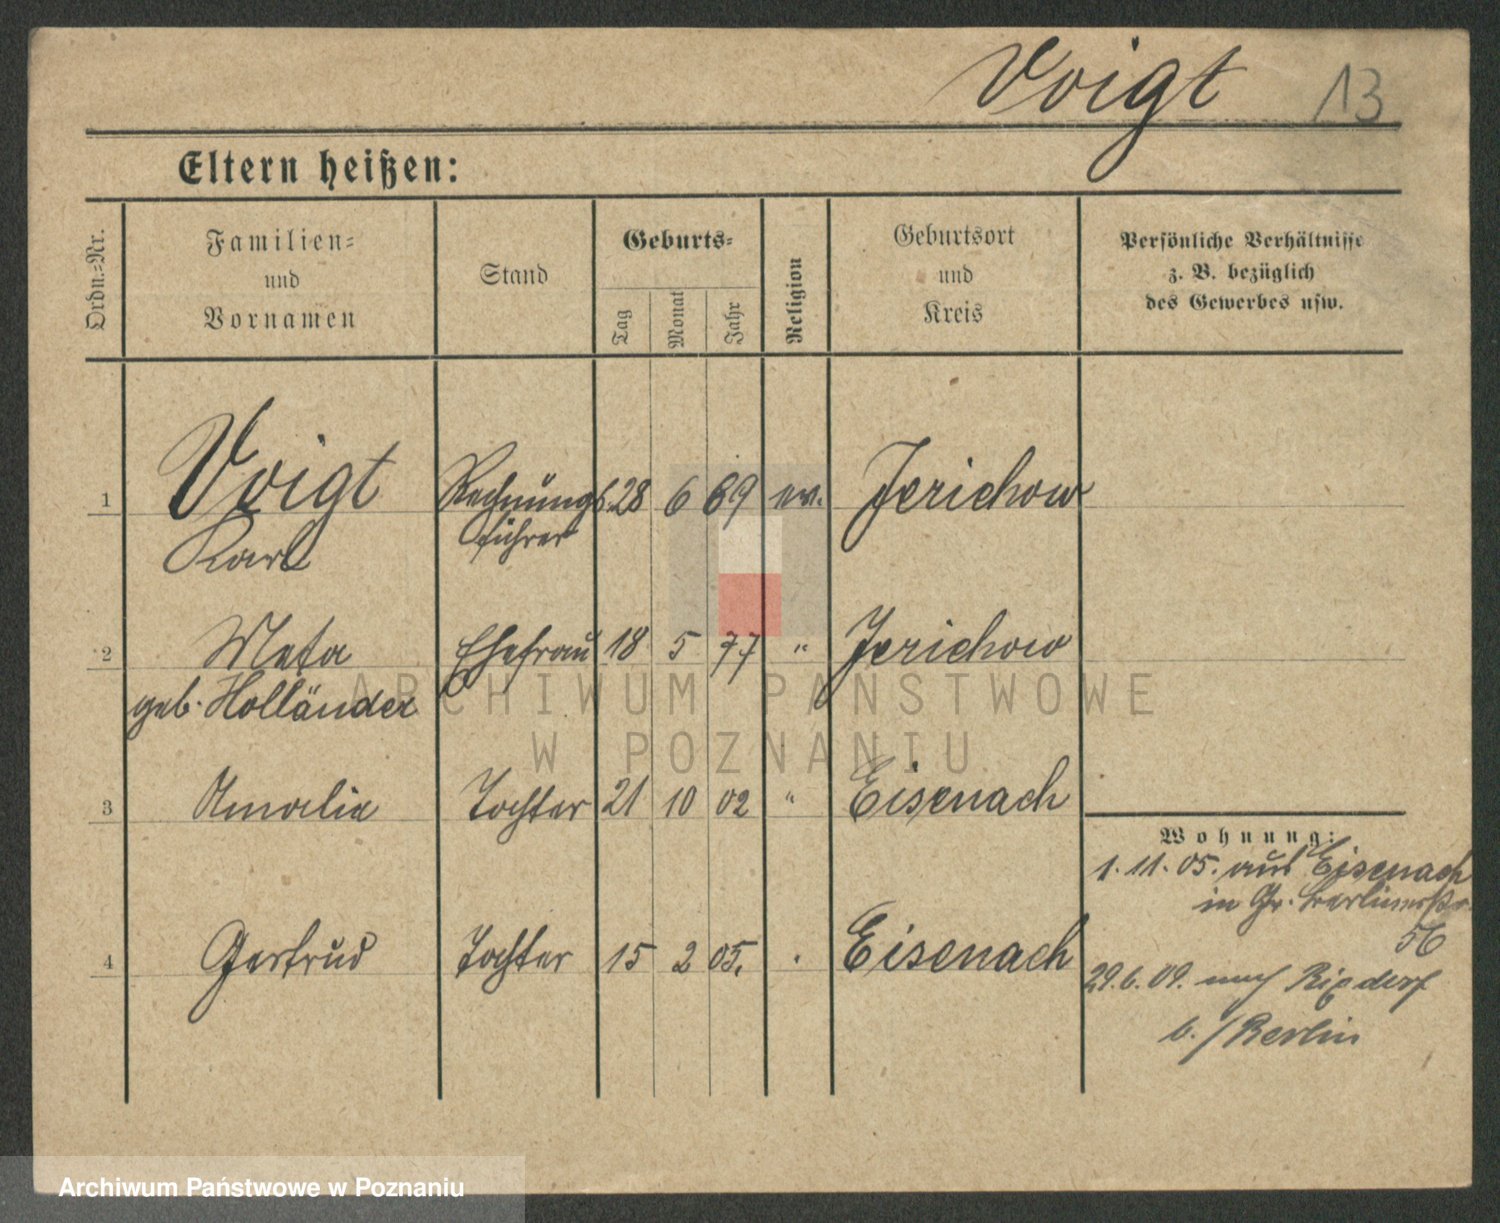 Voigt 13
Eltern heißen:
Ordn.-Nr.
Familien-
und
Vornamen
Stand
Geburts-
Tag
Monat
Jahr
Religion
Geburtsort
und
Kreis
Persönliche Verhältnisse
z. B. bezüglich
des Gewerbes usw.
1 Voigt Rechnungs- 28 6 69 ev. Jerichow
Karl führer
2 Meta Ehefrau 18 5 77 " Jerichow
geb. Holländer
3 Amalie Tochter 21 10 02 " Eisenach
Wohnung:
1.11.05. aus Eisenach
in Gr. Berlinerstr.
56
4 Gertrud Tochter 15 2 05. Eisenach
29.6.09. nach Rixdorf
b./Berlin
ARCHIWUM PAŃSTWOWE
W POZNANIU
Archiwum Państwowe w Poznaniu